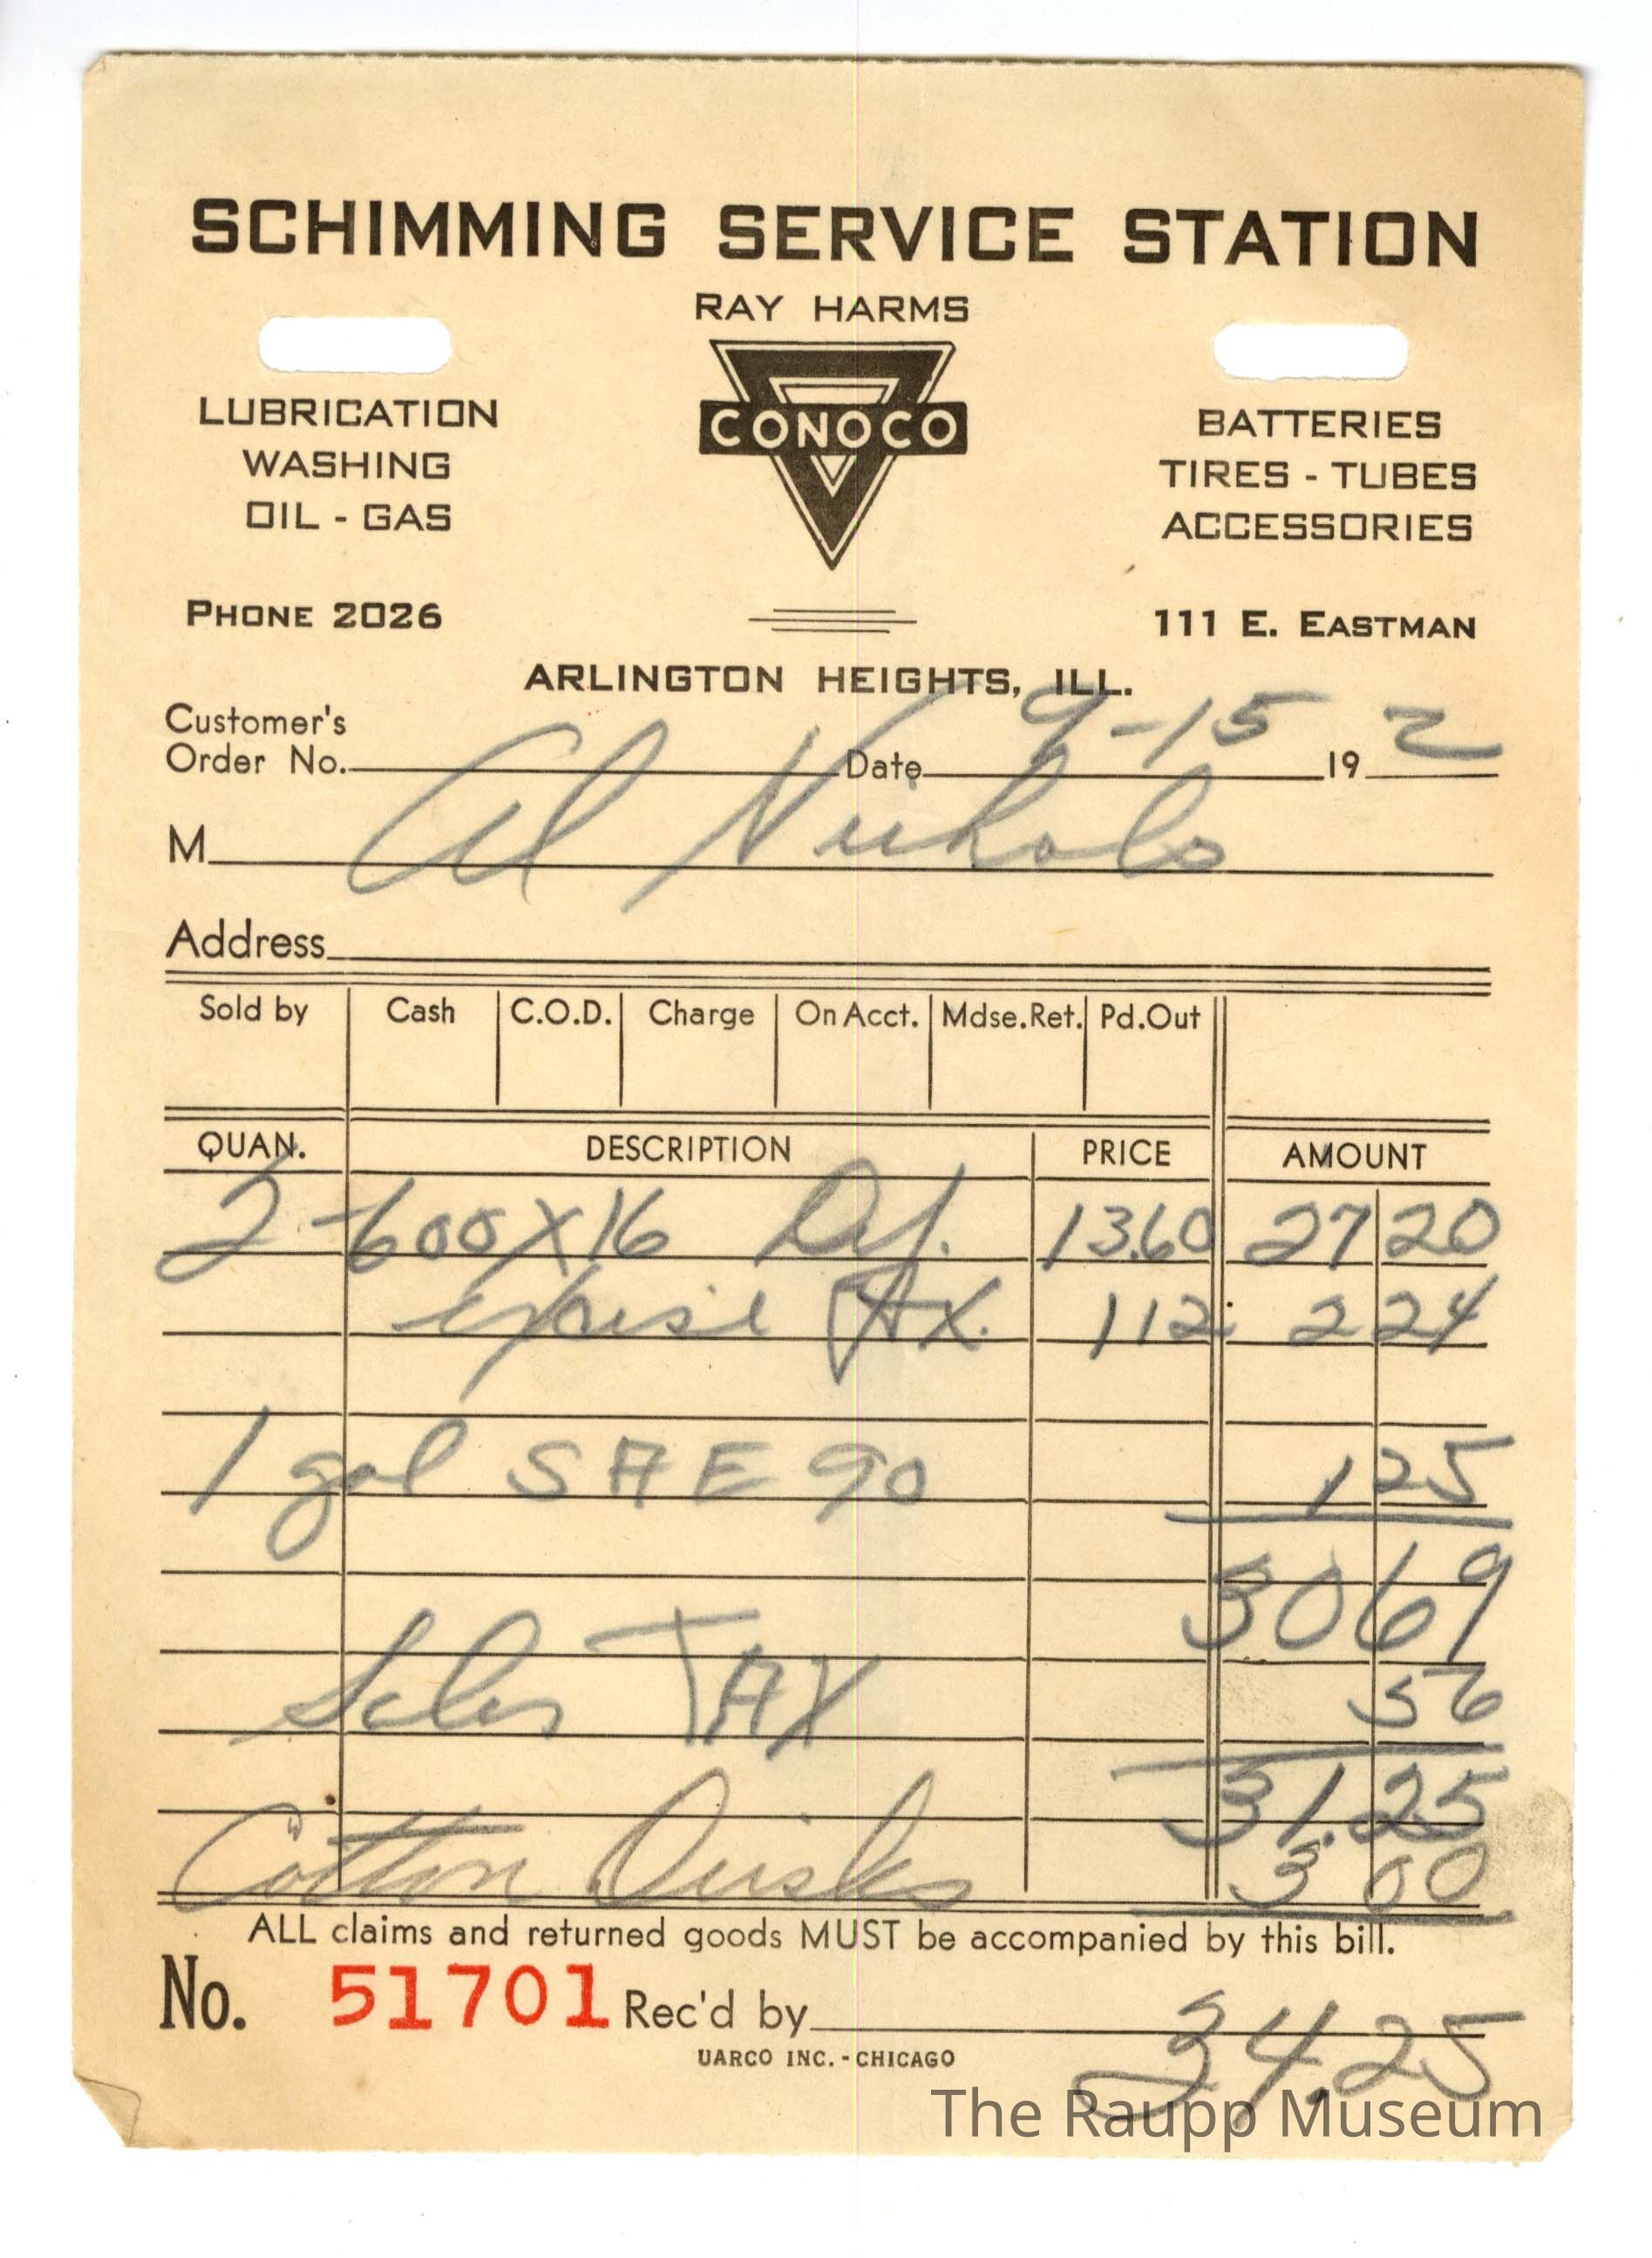 SCHIMMING SERVICE STATION
RAY HARMS
CONOCO
LUBRICATION
WASHING
OIL - GAS
BATTERIES
TIRES - TUBES
ACCESSORIES
PHONE 2026
111 E. EASTMAN
ARLINGTON HEIGHTS, ILL.
Customer's
Order No. Date 9-15 19 2
M Al Nichols
Address
Sold by Cash C.O.D. Charge On Acct. Mdse.Ret. Pd.Out
QUAN. DESCRIPTION PRICE AMOUNT
2 - 600 X 16 13.60 27 20
TAX. 112 2 24
1 gal SAE 90 1 25
30 69
Sales TAX 56
31.25
Cotton 3 00
ALL claims and returned goods MUST be accompanied by this bill.
No. 51701 Rec'd by
34.25
UARCO INC. - CHICAGO
The Raupp Museum